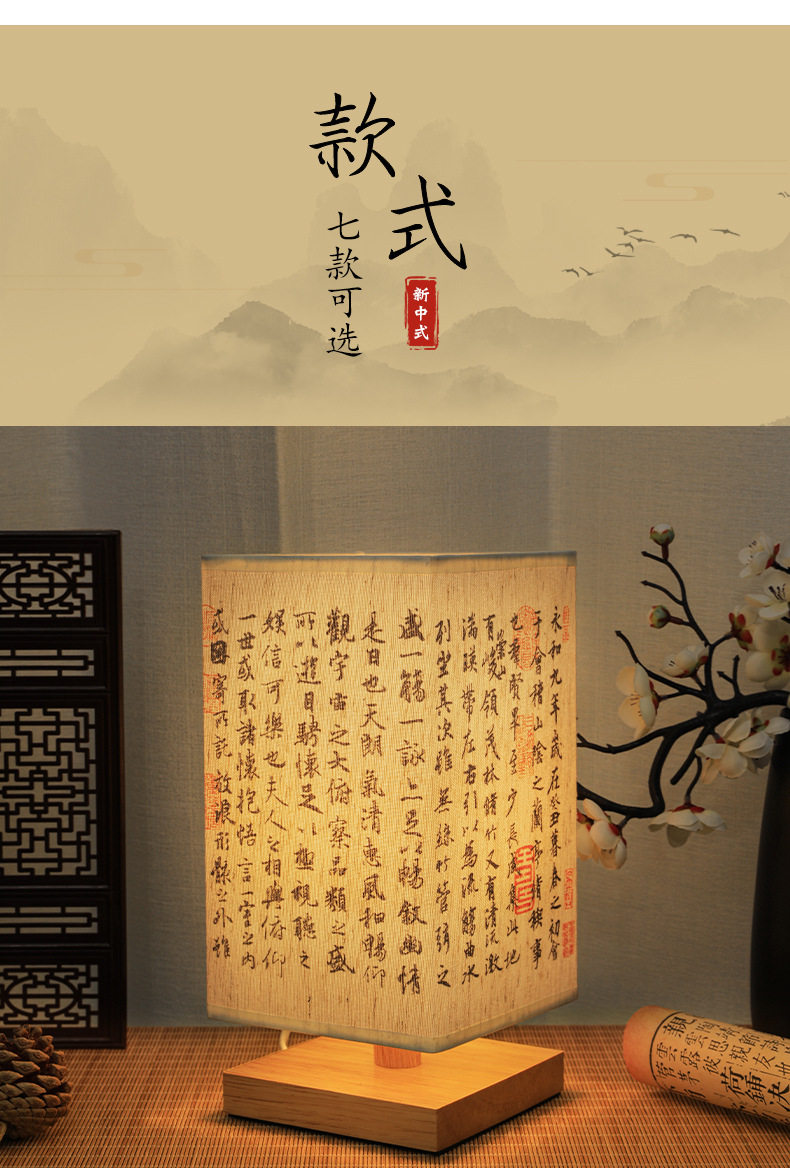 款式
七款可选
新中式
永和九年歲在癸丑暮春之初會
于會稽山陰之蘭亭脩稧事
也羣賢畢至少長咸集此地
有崇山峻領茂林脩竹又有清流激
湍暎帶左右引以為流觴曲水
列坐其次雖無絲竹管弦之
盛一觴一詠亦足以暢敘幽情
是日也天朗氣清惠風和暢仰
觀宇宙之大俯察品類之盛
所以遊目騁懷足以極視聽之
娛信可樂也夫人之相與俯仰
一世或取諸懷抱悟言一室之內
或因寄所託放浪形骸之外雖